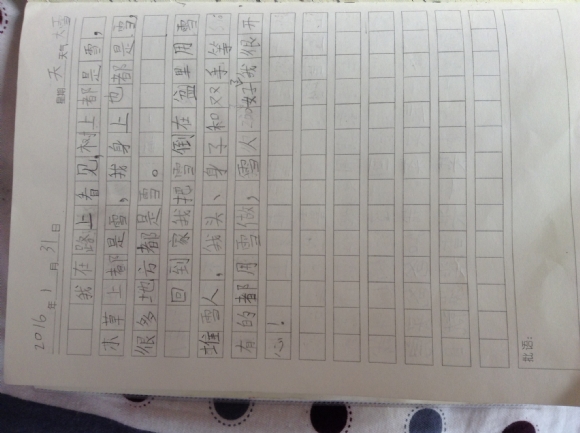 2016年1月31日 星期 天 天气 大雪
我在路上看见,树上都是雪,
木草上都是雪,我身上也都是雪,
很多地方都是雪。
回到家我把雪倒在盆里用雪
堆雪人,我头、身子和双手等
有的都用雪做,雪人 好我很开
心!
批语: